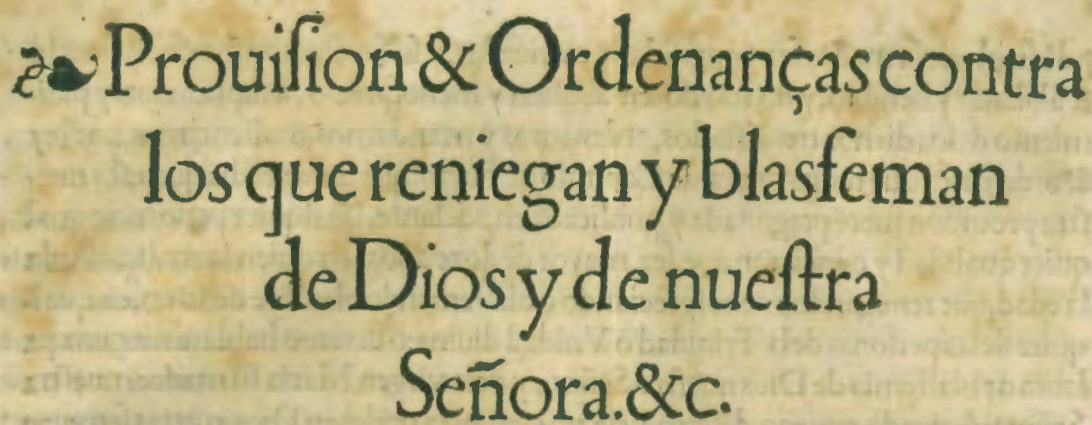 ❧ Prouiſion & Ordenanças contra
los que reniegan y blasfeman
de Dios y de nueſtra
Señora.&c.